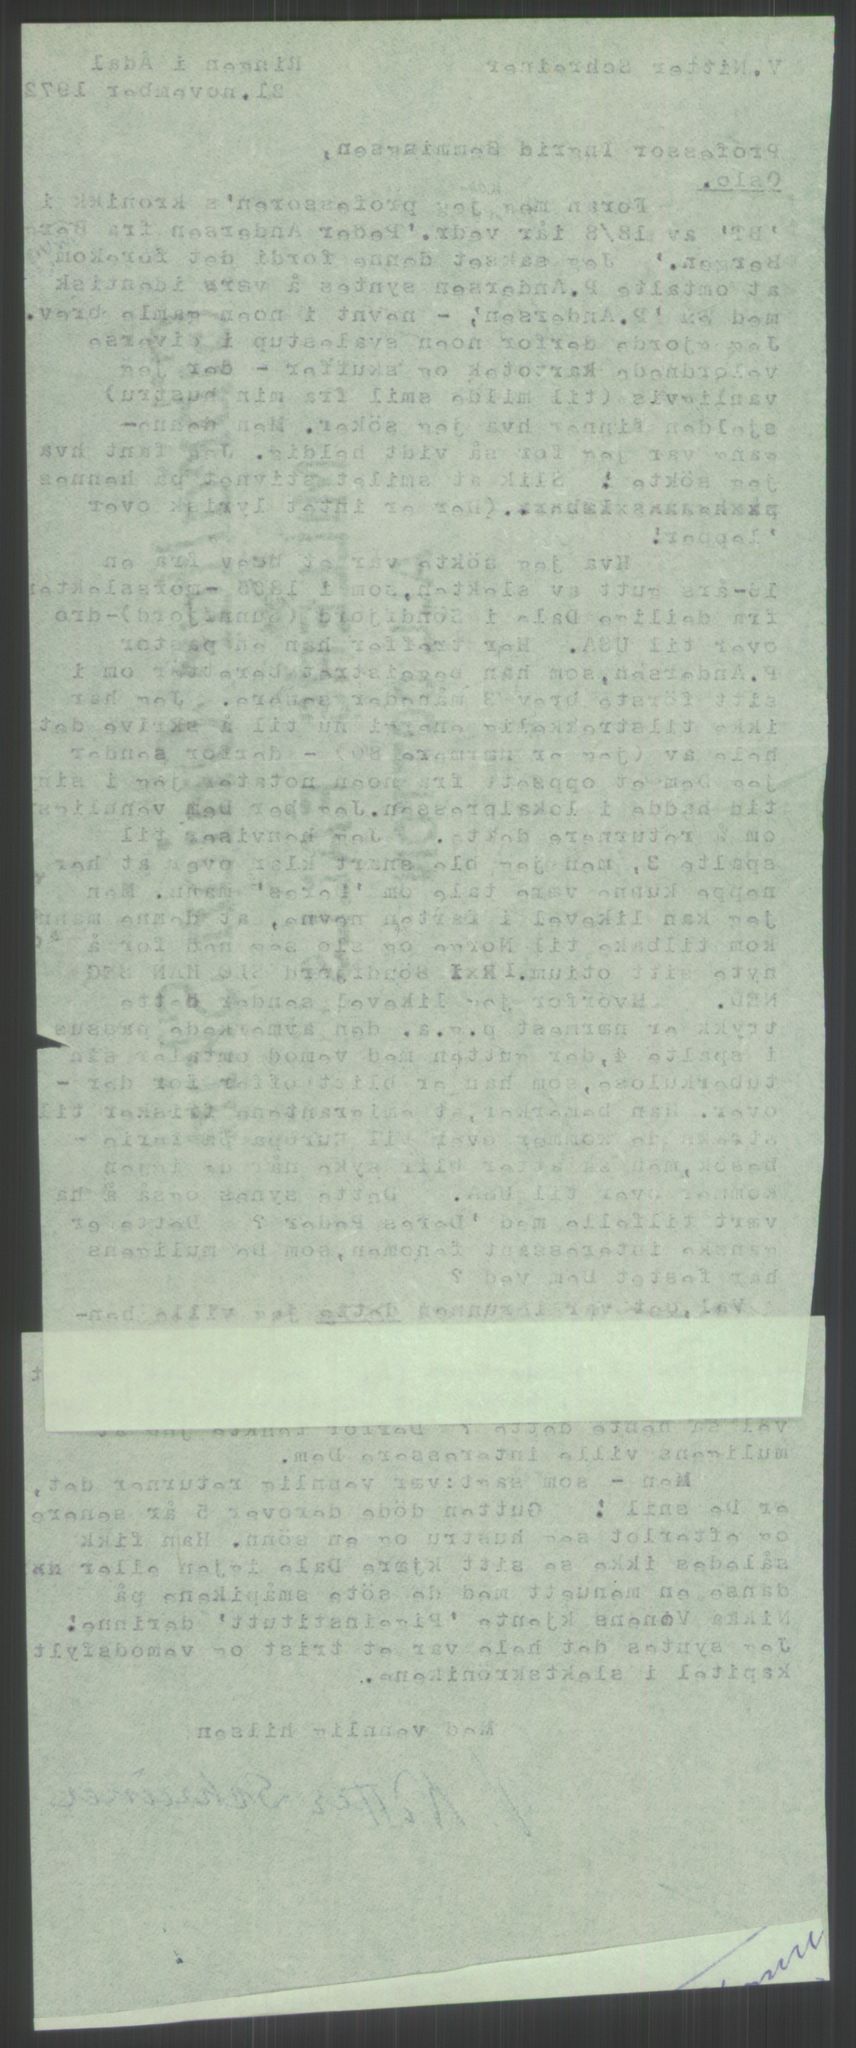 V. Nitter Schreiner Ringen i Ådal
21.november 1972
Professor Ingrid Semmingsen,
Oslo.
Foran meg jeg professoren's kronikk i
'BT' av 18/8 iår vedr.'Peder Andersen fra
Bergen.' Jeg sakset denne fordi det forekom
at omtalte P.Andersen syntes å være identisk
med en 'P.Andersen', - nevnt i noen gamle brev.
Jeg gjorde derfor noen svalestup i diverse
velordnede kartotek og skuffer - der jeg
vanligvis (til milde smil fra min hustru)
sjelden finner hva jeg söker. Men denne-
gang var jeg for så vidt heldig. Jeg fant hva
jeg sökte ! Slik at smilet stivnet på hennes
(Her er intet lyrisk over
'lepper!
Hva jeg sökte var et brev fra en
16-års gutt av slekten,som i -morsslekten
fra deilige Dale i Söndfjord (Sunnfjord)-dro
over til USA. Her treffer han en pastor
P.Andersen,som han begeistret beretter om i
sitt förste brev 3 måneder senere. Jeg har
ikke tilstrekkelig energi nu til å skrive det
hele av (jeg er nærmere 80) - derfor sender
jeg Dem et oppsett fra noen notater jeg i sin
tid hadde i lokalpressen.Jeg ber Dem vennligst
om å returnere dette. Jeg henviser til
spalte 3, men jeg ble snart klar over at her
neppe kunne være tale om 'Deres' mann. Men
jeg kan likevel i farten nevne, at denne mann
kom tilbake til Norge og slo seg ned for å
nyte sitt otium. I Söndfjord SLO HAN SEG
NED. Hvorfor jeg likevel sender dette
trykk er nærmest p.g.a. den avmerkede passus
i spalte 4,der gutten med vemod omtaler sin
tuberkulose,som han er blitt offer for der -
over. Han bemerker,at emigrantene frisker til
straks de kommer over til Europa på ferie -
besök,men så atter blir syke når de igjen
kommer over til USA. Dette synes også å ha
vært tilfelle med 'Deres Peder ? Dette er
ganske interessant fenomen,som De muligens
har festet Dem ved ?
Vel,det var dette jeg ville hen-
vel så hente dette ? Derfor tenkte jeg at
muligens ville interessere Dem.
Men - som sagt:vær vennlig returner det,
er De snil ! Gutten döde derover 5 år senere
og efterlot seg hustru og en sönn. Han fikk
således ikke se sitt kjære Dale igjen eller
danse en menuett med de söte småpikene på
Nikka Vonens kjente 'Pigeinstitutt' derinne!
Jeg syntes det hele var et trist og vemodsfylt
kapitel i slektskrönikene.
Med vennlig hilsen
V. Nitter Schreiner